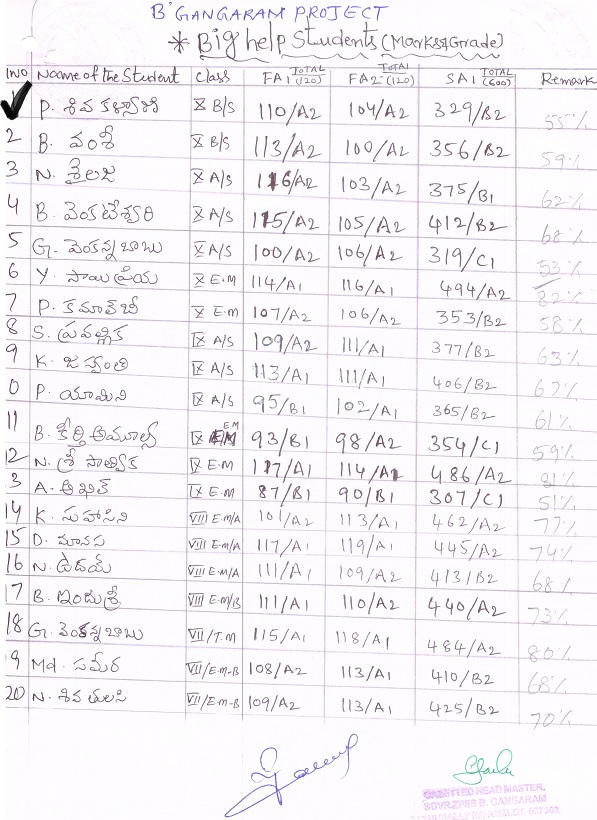 B' GANGARAM PROJECT
* Big help Students (Marks & Grade)
Name of the Student Class FA1 TOTAL (120) FA2 TOTAL (120) SA1 TOTAL (600) Remark
P. శివ X B/S 110/A2 104/A2 329/B2 55%
2 B. వంశీ X B/S 113/A2 100/A2 356/B2 59%
3 N. శైలజ X A/S 116/A2 103/A2 375/B1 62%
4 B. వెంకటేశ్వరి X A/S 115/A2 105/A2 412/B2 68%
5 G. వెంకన్న బాబు X A/S 100/A2 106/A2 319/C1 53%
6 Y. సాయి ప్రియ X E.M 114/A1 116/A1 494/A2 82%
7 P. కమాల్ బీ X E.M 107/A2 106/A2 353/B2 58%
8 S. ప్రవల్లిక IX A/S 109/A2 111/A1 377/B2 63%
9 K. IX A/S 113/A1 111/A1 406/B2 67%
0 P. యామిని IX A/S 95/B1 102/A1 365/B2 61%
11 B. కీర్తి అమూల్య IX EM 93/B1 98/A2 354/C1 59%
12 N. శ్రీ సాత్విక IX E.M 117/A1 114/A1 486/A2 81%
3 A. అఖిల్ IX E.M 87/B1 90/B1 307/C1 51%
14 K. సుహాసిని VIII E.M/A 101/A2 113/A1 462/A2 77%
15 D. మానస VIII E.M/A 117/A1 119/A1 445/A2 74%
16 N. ఉదయ్ VIII E.M/A 111/A1 109/A2 413/B2 68%
17 B. ఇందుశ్రీ VIII E.M/B 111/A1 110/A2 440/A2 73%
18 G. వెంకన్నబాబు VII/T.M 115/A1 118/A1 484/A2 80%
9 Md. సమీర VII/E.M-B 108/A2 113/A1 410/B2 68%
20 N. శివ తులసి VII/E.M-B 109/A2 113/A1 425/B2 70%
GAZETTED HEAD MASTER,
B. GANGARAM